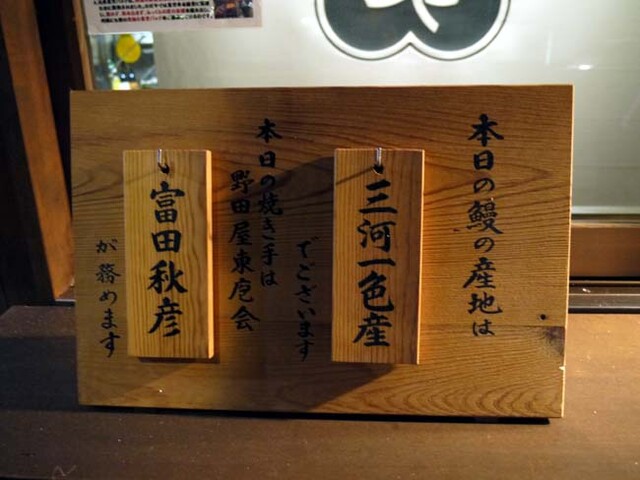 本日の鰻の産地は
三河一色産
でございます
本日の焼き手は
野田屋東庖会
富田秋彦
が務めます